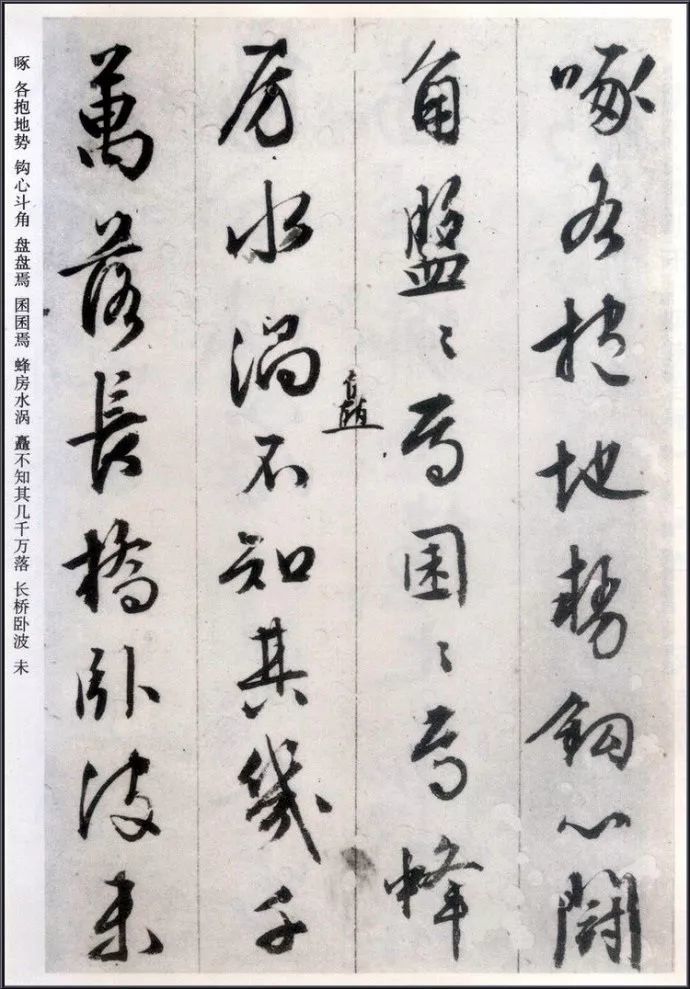 啄各抱地勢鈎心鬭
角盤〻焉囷〻焉蜂
房水渦不知其幾千
矗
萬落長橋臥波未
啄 各抱地势 钩心斗角 盘盘焉 囷囷焉 蜂房水涡 矗不知其几千万落 长桥卧波 未